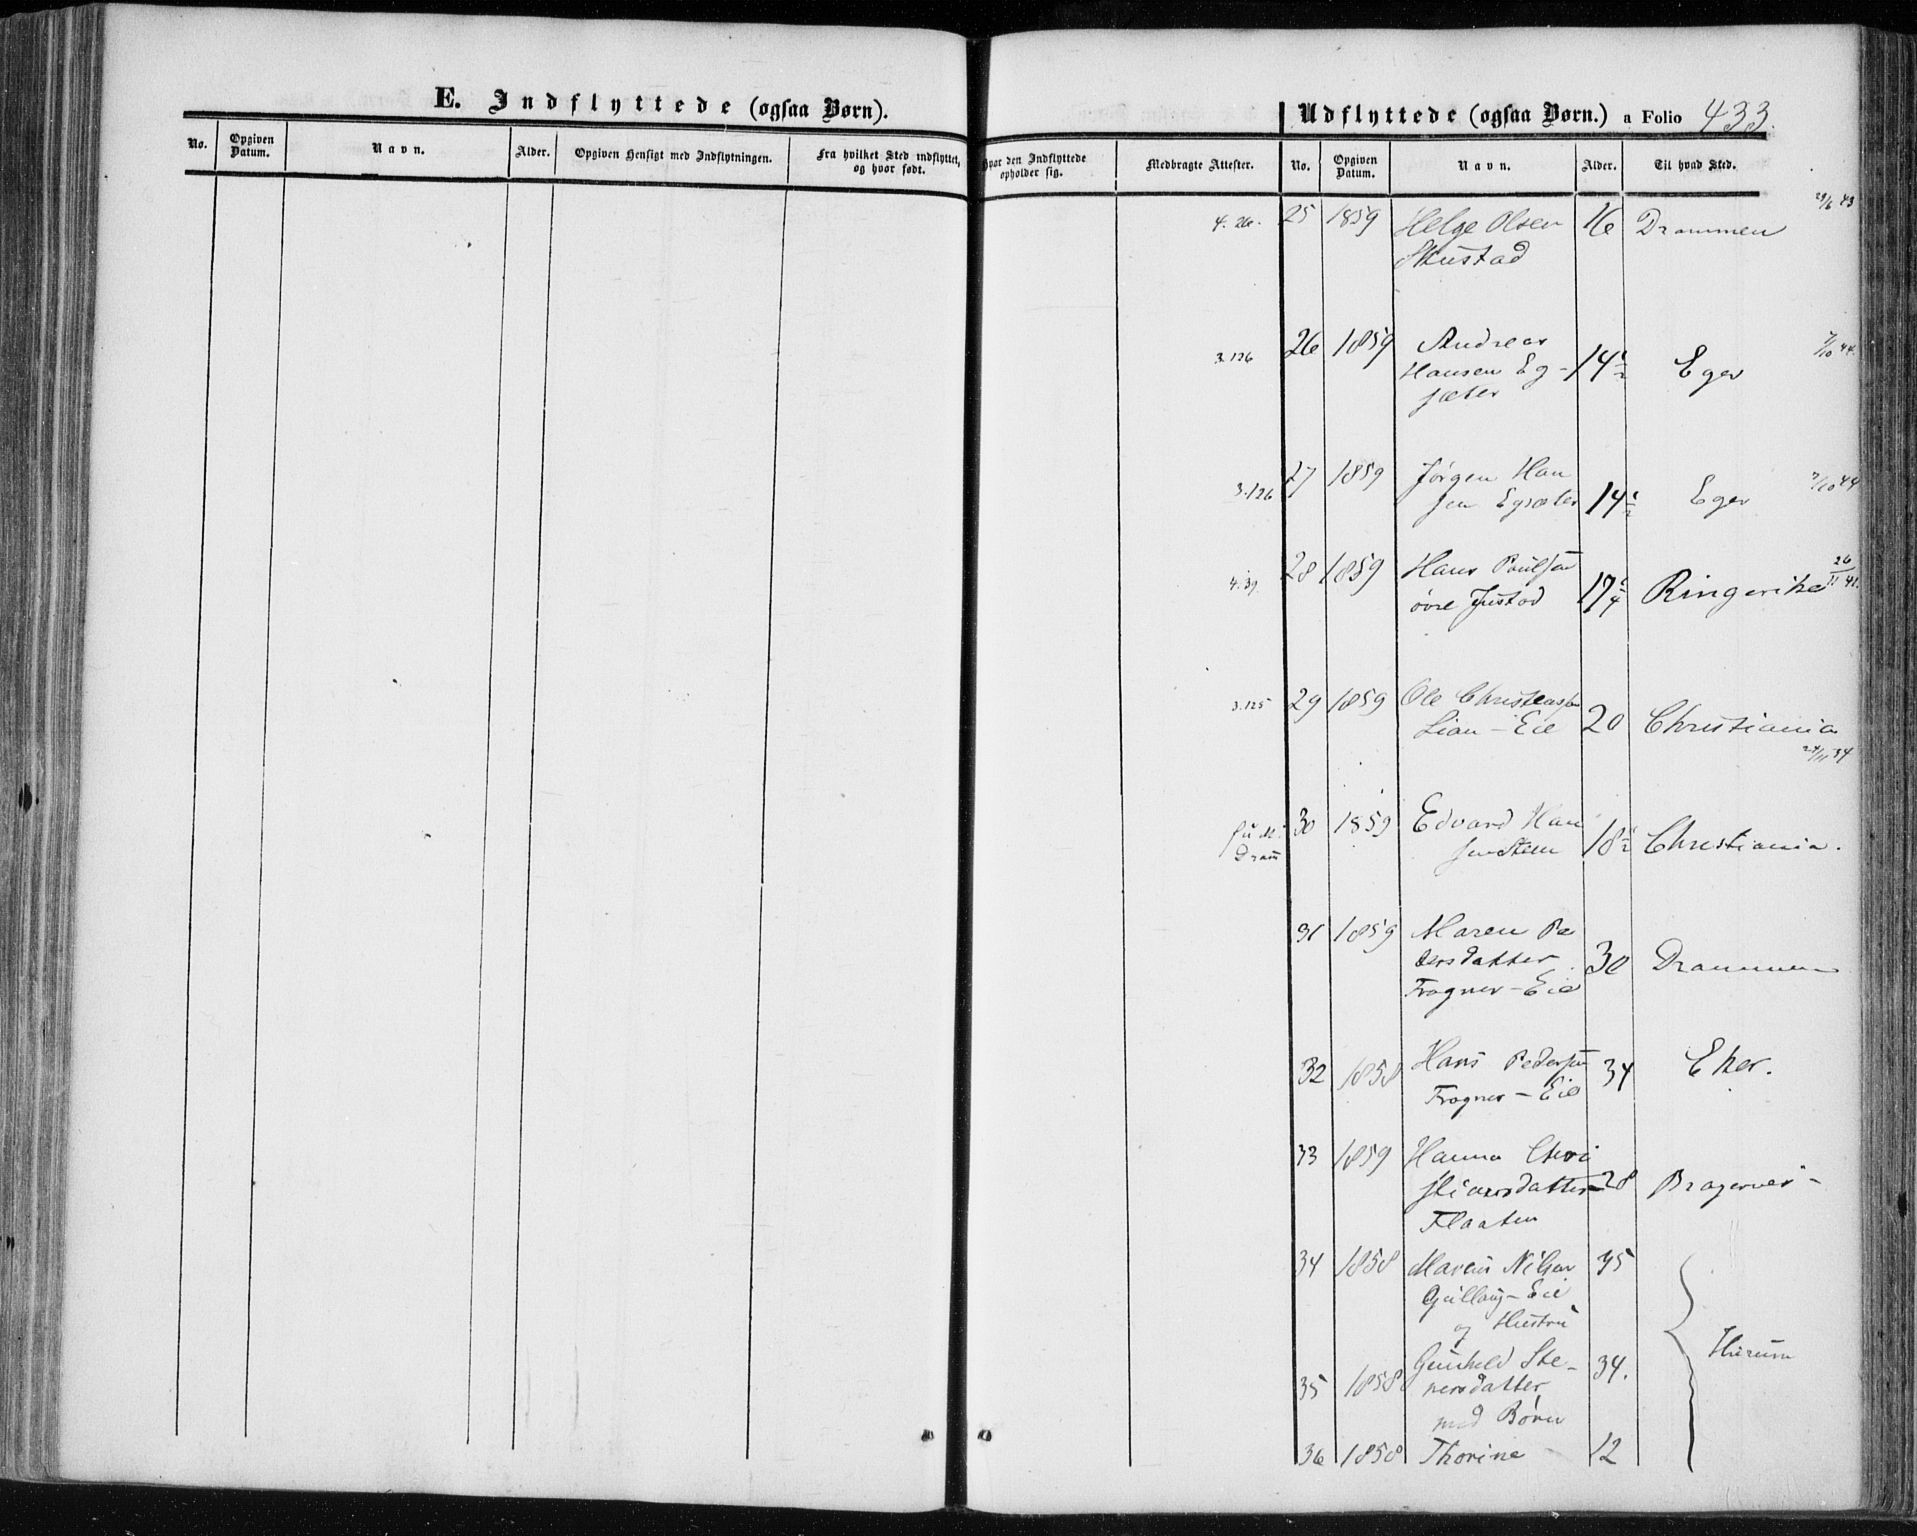 E. Indflyttede (ogsaa Børn).
No. Opgiven Datum. Navn. Alder. Opgiven Hensigt med Indflytningen. Fra hvilket Sted indflyttet, og hvor født. Hvor den Indflyttede opholder sig. Medbragte Attester.
Udflyttede (ogsaa Børn.) a Folio 433.
No. Opgiven Datum. Navn. Alder. Til hvad Sted.
4. 26. 25 1859 Helge Olsen 16 Drammen 29/6 43
Skustad
3. 126 26 1859 Andreas
Hansen Eg- 14 1/2 Eger 7/10 44.
sæter
3. 126 27 1859 Jørgen Han
sen Egsæter 14 1/2 Eger 7/10 44
4. 39. 28 1859 Hans Poulsen
øvre Justad 17 1/4 Ringerike 26/11 41.
3. 125 29 1859 Ole Christensen
Lian - Eie 20 Christiania
24/11 34
Dram 30 1859 Edvard Han
sen 18 1/2 Christiania.
31 1859 Maren Pe
dersdatter 30 Drammen
Frogner - Eie
32 1858 Hans Pedersen 34 Eker.
Frogner - Eie
33 1859 Hanna Chri
stiansdatter 28 Bragernes -
Flaaten
34 1858 Marcus Nilsen 35
Gullaug - Eie
og Hustru
Hurum
35 1858 Gunhild Ste- 34.
nersdatter
med Børn
36 1858 Thorine 12